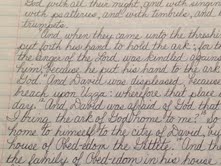 God with all their might, and with singing
with psalteries, and with timbrels, and
trumpets.
And when they came unto the threshi
put forth his hand to hold the ark; for
the anger of the Lord was kindled against
him, because he put his hand to the
God. And David was displeased, because
breach upon Uzza: wherefore that place
day. And David was afraid of God that
I bring the ark of God home to me? So
home to himself to the city of David, bu
house of Obed-edom the Gittite. And th
the family of Obed-edom in his house